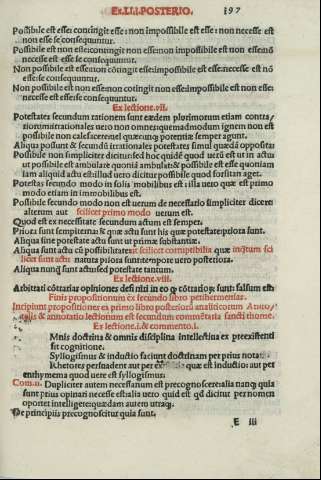 Et.I.II.POSTERIO. 197
Possibile est esse: contingit esse: non impossibile est esse: non necesse est
non esse se consequuntur.
Possibile est non esse: contingit non esse: non impossibile est non esse: nō
necesse est esse se consequuntur.
Non possibile est esse: non cōtingit esse: impossibile est esse: necesse est nō
esse: se consequuntur.
Non possibile est non esse: non cotingit non esse: impossibile est non esse:
necesse est esse se consequuntur.
Ex lectione.vii.
Potestates secundum rationem sunt eædem plurimorum etiam contra/
riorum: irrationales uero non omnes: quemadmodum ignem non est
possibile non calefacere: nec quæcunq; potentia semper agunt.
Aliqua possunt & secundū irrationales potestates simul quædā opposita
Possibile non simpliciter dicitur: sed hoc quidē quod uerū est ut in actu
ut possibile est ambulare quoniā ambulat: & possibile est esse quoniam
iam aliquid actu est: illud uero dicitur possibile quod forsitan aget.
Potestas secundo modo in solis mobilibus est: illa uero quæ est primo
modo etiam in immobilibus est.
Possibile secundo modo non est uerum de necessario simpliciter dicere
alterum aut scilicet primo modo uerum est.
Quod est ex necessitate secundum actum est semper.
Priora sunt sempiterna: & quæ actu sunt his quæ potestate priora sunt.
Aliqua sine potestate actu sunt ut primæ substantiæ.
Aliqua sunt actu cū possibilitate ut scilicet corruptibilia quæ inqtum sci
licet sunt actu natura priora sunt: tempore uero posteriora.
Aliqua nunq̄ sunt actu: sed potestate tantum.
Ex lectione.viii.
Arbitrari cōtrarias opiniones defi niri in eo q̄ cōtrariorū sunt: falsum est.
Finis propositionum ex secundo libro perihermenias.
Incipiunt propositiones ex primo libro posteriorū analiticorum
& annotatio lectionum est secundum commentaria sancti thome.
Ex lectione.i. & commento.i.
Mnis doctrina & omnis disciplina intellectiua ex præexistenti
fit cognitione.
Syllogismus & inductio faciunt doctrinam per prius nota
Rhetores persuadent aut per quæ est inductio: aut per
enthymema quod uere est syllogismus.
Com.ii. Dupliciter autem necessarium est præcognoscere: alia nanq; quia
sunt prius opinari necesse est: alia uero quid est qd dicitur per nomen
oportet intelligere: quædam autem utraq;.
De principiis præcognoscitur quia sunt.
E iii